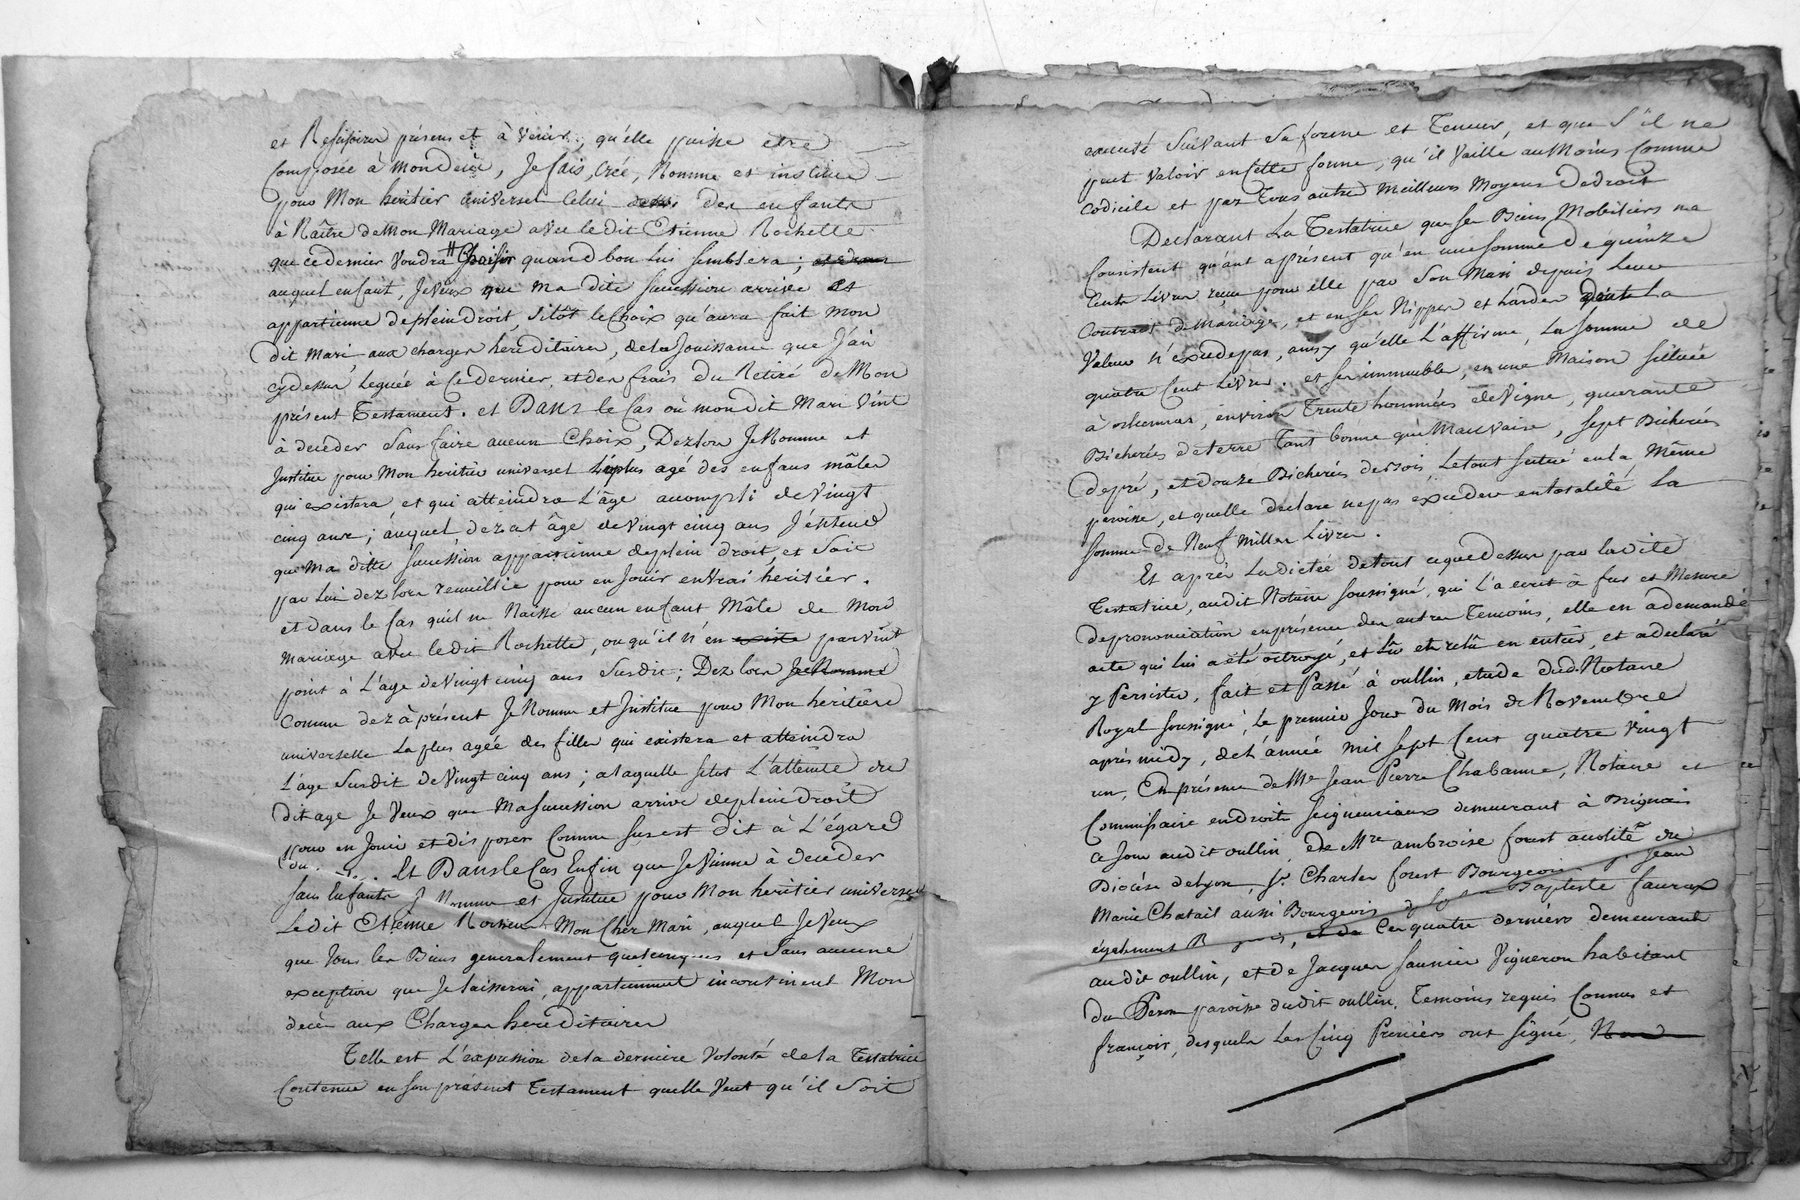 et Rescisoires présens et à venir, qu'elle puisse etre
Composée à mon decès, Je fais, créé, Nomme et institue
pour Mon heritier universel Celui des enfants
à Naître de Mon Mariage avec le dit Etienne Rochette
que ce dernier Voudra Choisir quand bon lui semblera;
auquel enfant, Je Veux que ma dite succession arrive et
appartienne de plein droit, sitôt le Choix qu'aura fait mon
dit mari, aux charges hereditaires, de la Jouissance que J'ai
cy dessus Leguée à Ce dernier, et des frais du Retiré de Mon
présent Testament. et Dans le Cas où mon dit Mari Vint
à deceder sans faire aucun Choix, Dez lors Je Nomme et
Institue pour Mon heritier universel Le plus agé des enfans mâles
qui existera et qui atteindra L'âge accompli de Vingt
cinq ans; auquel dez cet âge de Vingt cinq ans J'entend
que Ma ditte succession appartienne de plein droit, et soit
par Lui dez lors recuillie pour en Jouir en Vrai heritier.
et dans le Cas qu'il ne Naisse aucun enfant Mâle de Mon
Mariage avec le dit Rochette, ou qu'il n'en existe parvint
point à L'age de Vingt cinq ans susdit; Dez lors Je Nomme
Comme dez à présent Je Nomme et Institue pour Mon heritiere
universelle La plus agée des filles qui existera et atteindra
L'age susdit de Vingt cinq ans; a laquelle sitot L'atteinte du
dit age Je Veux que Ma succession arrive de plein droit
pour en Jouir et disposer Comme sus est dit à L'égard
du Et Dans le Cas Enfin que Je Vienne à deceder
sans Enfants Je Nomme et Institue pour Mon heritier universel
Le dit Etienne Rochette Mon Cher Mari, auquel Je Veux
que Tous les Biens generalement quelconques et sans aucune
exception que Je laisserai, appartiennent incontinent Mon
decès aux Charges hereditaires
Telle est L'expression de la derniere Volonté de la Testatrice
Contenue en son présent Testament quelle Veut qu'il soit
executé suivant sa forme et Teneur, et que s'il ne
peut Valoir en Cette forme, qu'il Vaille au Moins Comme
Codicile et par Tous autre Meilleurs Moyens de droit
Declarant La Testatrice que ses Biens Mobiliers ne
Consistent qu'ant a présent qu'en une somme de quinze
Cents Livres reçue pour elle par son Mari depuis Leur
Contrat de Mariage, et en ses Nippes et hardes dont La
Valeur n'excede pas, ainsy qu'elle L'affirme, La somme de
quatre Cent Livres. et ses immeubles, en une Maison sittuée
à environ Trente hommées de Vigne, quarante
Bicherées de terre Tant bonne que Mauvaise, sept Bicherées
de pré, et douze Bicherées de bois Le tout situé en la Même
paroisse, et quelle declare ne pas exceder en totalité La
somme de Neuf Milles Livres.
Et après La dictée de tout ce que dessus par la dite
Testatrice, au dit Notaire soussigné, qui L'a ecrit à fur et Mesure
de prononciation en présence des autres Temoins, elle en a demandé
acte qui lui a été octroyé, et Lû et relû en entier, et a declaré
y Persister, fait et Passé à oullin, etude dud. Notaire
Royal soussigné, Le premier Jour du Mois de Novembre
après midy, de L'année Mil sept Cent quatre Vingt
un, En présence de Me Jean Pierre Chabanne, Notaire et
Commissaire en droits seigneuriaux demeurant à Brignais
Ce Jour audit oullin, de Mre ambroise forest acolite du
Diocèse de Lyon, sr. Charles forest Bourgeois, sr. Jean
Marie Chatail aussi Bourgeois Baptiste faurax
également et de Ces quatre derniers demeurant
audit oullin, et de Jacques saunier Vigneron habitant
du Peron paroisse dudit oullin, Temoins requis Connus et
françois, desquels Les Cinq Premiers ont signé, Non